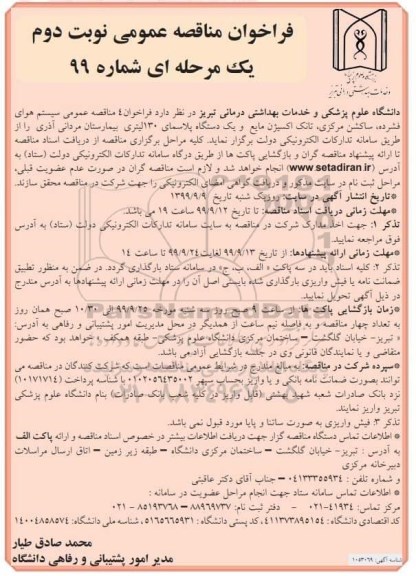 فراخوان مناقصه عمومی نوبت دوم
یک مرحله ای شماره ۹۹
دانشگاه علوم پزشکی و خدمات بهداشتی درمانی تبریز در نظر دارد فراخوان ۴ مناقصه عمومی سیستم هوای
فشرده، ساکشن مرکزی، تانک اکسیژن مایع و یک دستگاه پلاسمای ۱۳۰لیتری بیمارستان مردانی آذری را از
طریق سامانه تدارکات الکترونیکی دولت برگزار نماید. کلیه مراحل برگزاری مناقصه از دریافت اسناد مناقصه
تا ارائه پیشنهاد مناقصه گران و بازگشایی پاکت ها از طریق درگاه سامانه تدارکات الکترونیکی دولت (ستاد) به
آدرس (www.setadiran.ir) انجام خواهد شد و لازم است مناقصه گران در صورت عدم عضویت قبلی،
مراحل ثبت نام در سایت مذکور و دریافت گواهی امضای الکترونیکی را جهت شرکت در مناقصه محقق سازند.
*تاریخ انتشار آگهی در سایت: روز یک شنبه تاریخ ۱۳۹۹/۹/۹
*مهلت زمانی دریافت اسناد مناقصه: تا تاریخ ۹۹/۹/۱۲ ساعت ۱۹ می باشد.
تذکر ۱: جهت اخذ مدارک شرکت در مناقصه به سایت سامانه تدارکات الکترونیکی دولت (ستاد) به آدرس
فوق مراجعه نمایید.
*مهلت زمانی ارائه پیشنهادها: از تاریخ ۹۹/۹/۱۳ لغایت ۹۹/۹/۲۴ تا ساعت ۱۴
تذکر ۲: کلیه اسناد باید در سه پاکت «الف، ب، ج» در سامانه ستاد بارگذاری گردد. در ضمن به منظور تطبیق
ضمانت نامه یا فیش واریزی بارگذاری شده بایستی اصل آن را در مهلت زمانی ارائه پیشنهادها به آدرس مندرج
در ذیل آگهی تحویل نمایید.
*زمان بازگشایی پاکت ها: ساعت ۱۰ صبح روز سه شنبه مورخ ۹۹/۹/۲۵ الی ۱۰:۳۰ صبح همان روز
به تعداد چهار مناقصه و به فاصله نیم ساعت از همدیگر در محل مدیریت امور پشتیبانی و رفاهی به آدرس:
«تبریز- خیابان گلگشت – ساختمان مرکزی دانشگاه علوم پزشکی- طبقه همکف» خواهد بود که حضور
متقاضی و یا نمایندگان قانونی وی در جلسه بازگشایی آزاد می باشد.
*سپرده شرکت در مناقصه: به مبالغ مندرج در شرایط عمومی مناقصات است که شرکت کنندگان در مناقصه می
توانند بصورت ضمانت نامه بانکی و یا واریز بحساب سپهر ۰۱۰۲۰۵۶۴۳۵۰۰۲ شناسه پرداخت (۱۰۱۷۱۷۱۴)
نزد بانک صادرات شعبه شهید بهشتی (قابل واریز در کلیه شعب بانک صادرات) بنام دانشگاه علوم پزشکی
تبریز واریز نمایند.
تذکر ۳: فیش واریزی به صورت ساتنا و پایا مورد قبول نمی باشد.
* اطلاعات تماس دستگاه مناقصه گزار جهت دریافت اطلاعات بیشتر در خصوص اسناد مناقصه و ارائه پاکت الف
به آدرس : تبریز- خیابان گلگشت – ساختمان مرکزی دانشگاه – طبقه زیر زمین – اتاق ارسال مراسلات
دبیرخانه مرکزی
و شماره تلفن : ۰۴۱۳۳۳۵۵۹۳۴ – جناب آقای دکتر عاقبتی
* اطلاعات تماس سامانه ستاد جهت انجام مراحل عضویت در سامانه :
مرکز تماس: ۴۱۹۳۴-۰۲۱ - دفتر ثبت نام: ۸۸۹۶۹۷۳۷ – ۸۵۱۹۳۷۶۸-۰۲۱
کد اقتصادی دانشگاه : ۴۱۱۳۷۳۸۹۵۱۵۴، کد پستی دانشگاه : ۵۱۶۵۶۶۵۹۳۱، شناسه ملی دانشگاه: ۱۴۰۰۴۸۵۸۵۷۴
محمد صادق طیار
مدیر امور پشتیبانی و رفاهی دانشگاه
شناسه آگهی: ۱۰۵۳۰۶۹